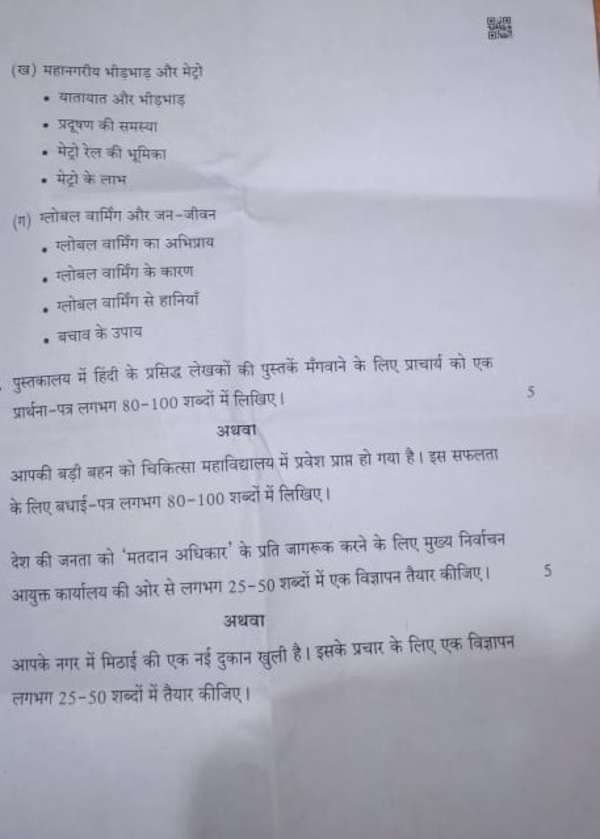 (ख) महानगरीय भीड़भाड़ और मेट्रो
• यातायात और भीड़भाड़
• प्रदूषण की समस्या
• मेट्रो रेल की भूमिका
• मेट्रो के लाभ
(ग) ग्लोबल वार्मिंग और जन-जीवन
• ग्लोबल वार्मिंग का अभिप्राय
• ग्लोबल वार्मिंग के कारण
• ग्लोबल वार्मिंग से हानियाँ
• बचाव के उपाय
पुस्तकालय में हिंदी के प्रसिद्ध लेखकों की पुस्तकें मँगवाने के लिए प्राचार्य को एक
प्रार्थना-पत्र लगभग 80-100 शब्दों में लिखिए। 5
अथवा
आपकी बड़ी बहन को चिकित्सा महाविद्यालय में प्रवेश प्राप्त हो गया है। इस सफलता
के लिए बधाई-पत्र लगभग 80-100 शब्दों में लिखिए।
देश की जनता को 'मतदान अधिकार' के प्रति जागरूक करने के लिए मुख्य निर्वाचन
आयुक्त कार्यालय की ओर से लगभग 25-50 शब्दों में एक विज्ञापन तैयार कीजिए। 5
अथवा
आपके नगर में मिठाई की एक नई दुकान खुली है। इसके प्रचार के लिए एक विज्ञापन
लगभग 25-50 शब्दों में तैयार कीजिए।